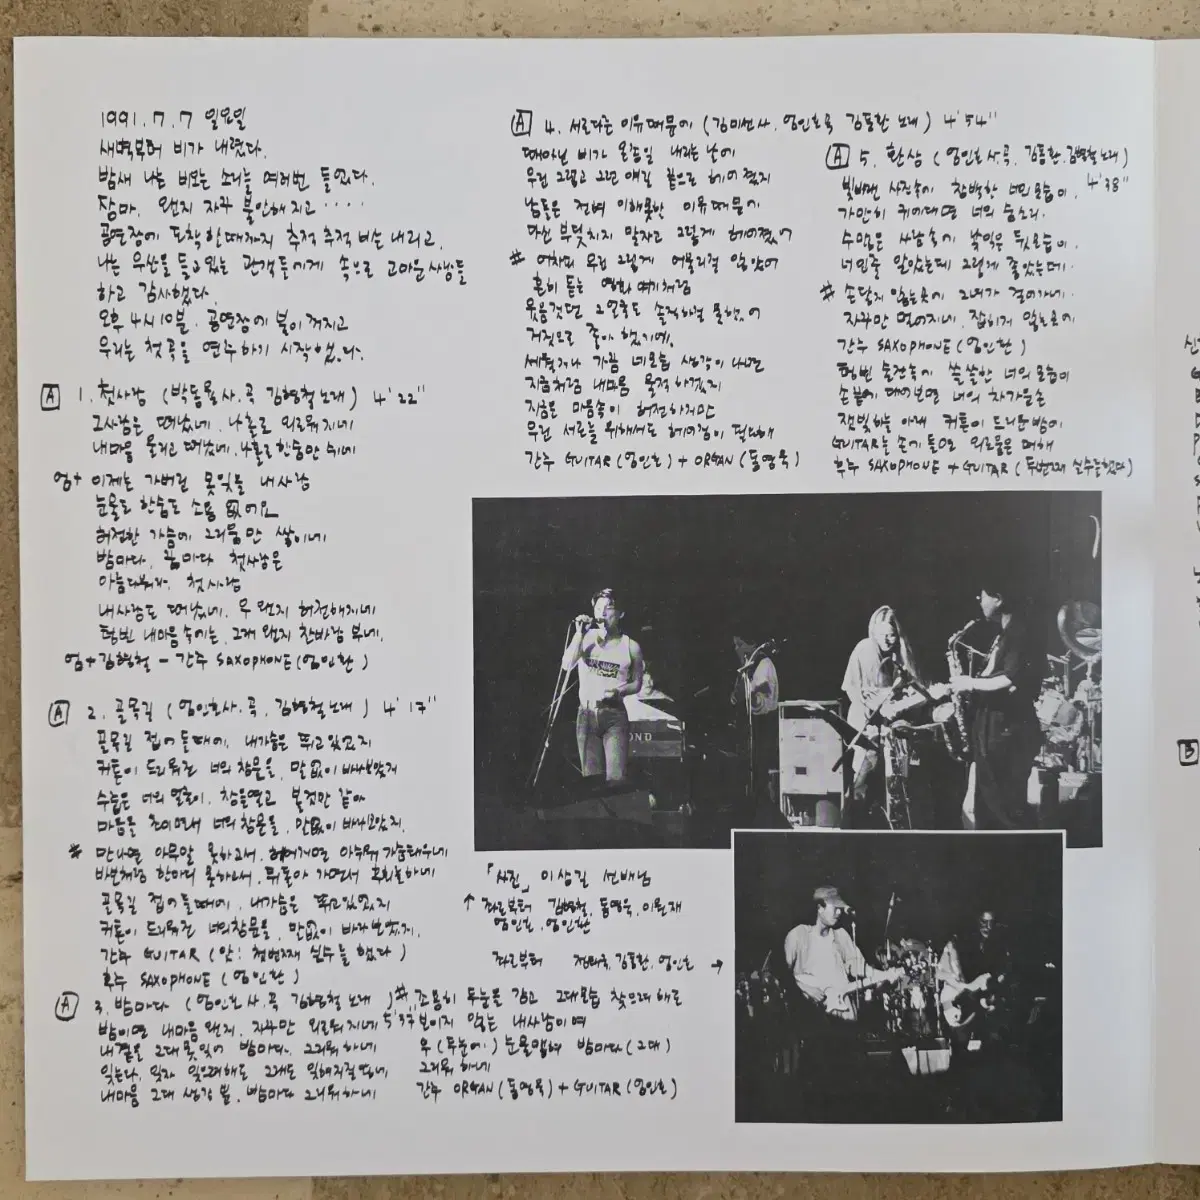 1991.7.7 일요일
새벽부터 비가 내렸다.
밤새 나는 비오는 소리를 여러번 들었다.
장마. 왠지 자꾸 불안해지고 .....
공연장에 도착할때까지 추적추적 비는 내리고,
나는 우산을 들고있는 관객들에게 속으로 고마운사람들
하고 감사했다.
오후 4시10분. 공연장에 불이 꺼지고
우리는 첫곡을 연주하기 시작했다.
A 1. 첫사랑 (박동률사.곡 김형철노래) 4'22"
그사람은 떠났네. 나홀로 외로워지네
내마음 울리고 떠났네. 나홀로 한숨만 쉬네
엄+ 이제는 가버린 못잊을 내사랑
눈물도 한숨도 소용 없어요
허전한 가슴에 그리움만 쌓이네
밤마다. 꿈마다 첫사랑은
아름다워라. 첫사랑
내사랑도 떠났네. 우 왠지 허전해지네
텅빈 내마음속에는. 그대 왠지 찬바람 부네.
엄+김형철 - 간주 SAXOPHONE(엄인환)
A 2. 골목길 (엄인호사.곡. 김형철노래) 4'17"
골목길 접어들때에, 내가슴은 뛰고있었지
커튼이 드리워진 너의창문을, 말없이 바라보았지
수줍은 너의 얼굴이, 창을열고 볼것만 같아
마음을 조이면서 너의창문을, 말없이 바라보았지.
# 만나면 아무말 못하고서, 헤어지면 아쉬워 가슴태우네
바보처럼 한마디 못하고서, 뒤돌아 가면서 후회하네
골목길 접어들때에, 내가슴은 뛰고있었지
커튼이 드리워진 너의창문을, 말없이 바라보았지.
간주 GUITAR (엄: 첫번째 실수를 했다)
후주 SAXOPHONE (엄인환)
A 3. 밤마다 (엄인호사.곡 김형철 노래) 5'37"
밤이면 내마음 왠지. 자꾸만 외로워지네
내곁을 그대 못잊어 밤마다. 그리워하네
잊는다. 잊자 잊으려해도 그래도 잊혀지질않네
내마음 그대 생각뿐, 밤마다 그리워하네
# 조용히 두눈을 감고 그대모습 찾으려해도
보이지 않는 내사랑이여
우(두눈에) 눈물맺혀 밤마다(그대)
그리워 하네
간주 ORGAN(동영욱)+GUITAR(엄인호)
A 4. 서로다른 이유때문에 (김미선사. 엄인호곡 김동환노래) 4'54"
때아닌 비가 온종일 내리는 날에
우린 그렇고 그런 얘길 끝으로 헤어졌지
남들은 전혀 이해못할 이유때문에
다신 부딪치지 말자고 그렇게 헤어졌어
# 어차피 우린 그렇게 어울리질 않았어
흔히 듣는 영화 얘기처럼
웃음졌던 그얼굴도 솔직하질 못했어
거짓으로 좋아 했기에.
세월지나 가끔 네모습 생각이 나면
지금처럼 내마음 울적하겠지
지금은 마음속이 허전하지만
우린 서로를 위해서도 헤어짐이 필요해
간주 GUITAR(엄인호)+ORGAN(동영욱)
A 5. 환상 (엄인호사.곡. 김동환.김형철노래) 4'38"
빛바랜 사진속에 창백한 너의모습이.
가만히 귀기대면 너의 숨소리.
수많은 사람속에 낯익은 뒷모습이.
너인줄 알았는데 그렇게 좋았는데.
# 손닿지 않는곳에 그녀가 걸어가네.
자꾸만 멀어지네. 잡히지 않는곳에
간주 SAXOPHONE(엄인환)
텅빈 술잔속에 쓸쓸한 너의모습이
손끝에 대어보면 너의 차가운손
잠못하는 아래 커튼이 드리운밤에
GUITAR를 손에 들으면 외로움은 더해
후주 SAXOPHONE+GUITAR(두번째 실수를했다)
「사진」 이상길 선배님
↑ 좌로부터 김형철, 동영욱, 이원재
엄인호, 엄인환
좌로부터 정태국, 김동환, 엄인호 →
B